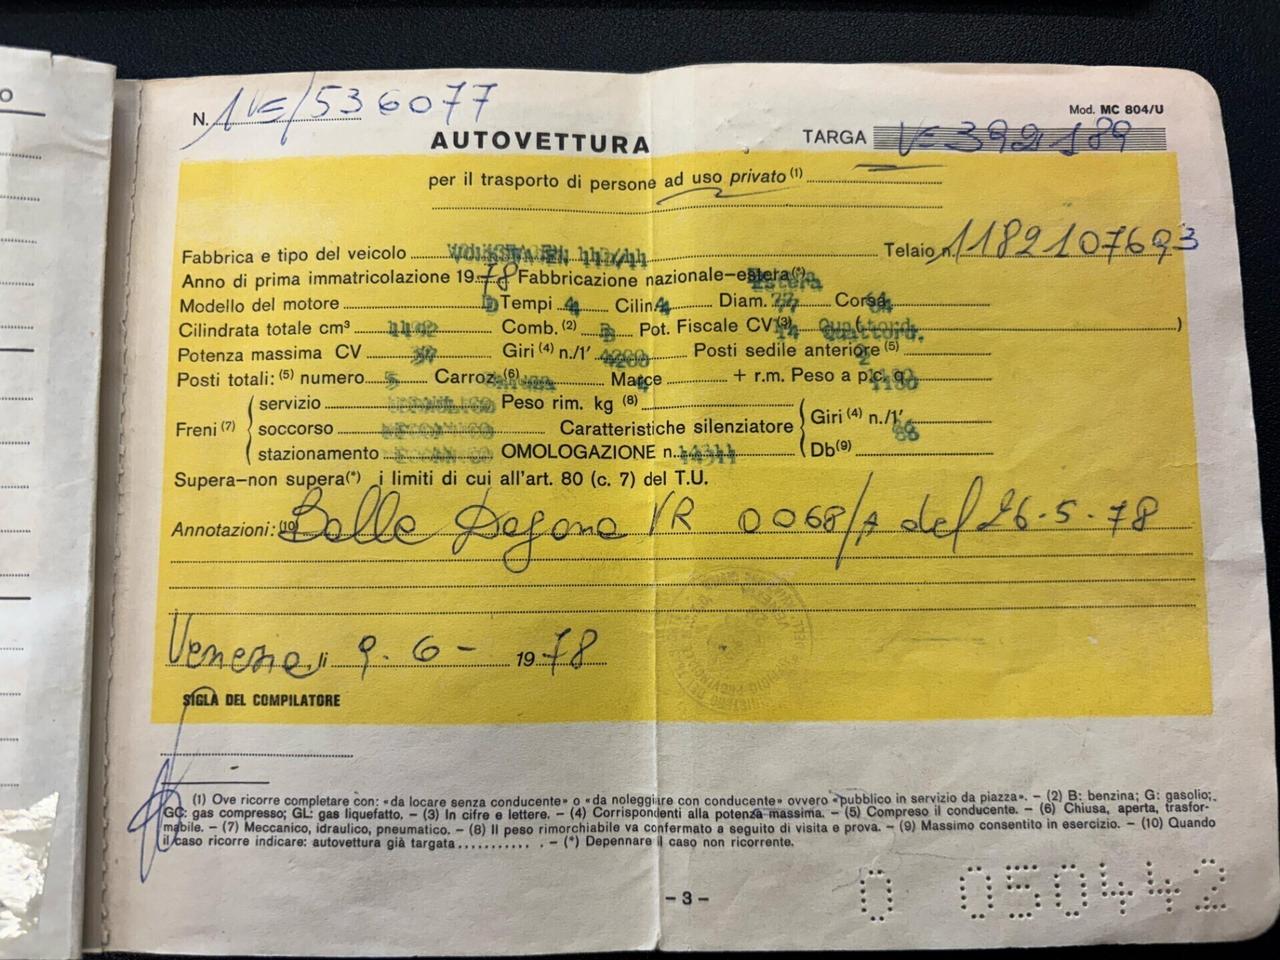 O
N. 1 VE/536077
Mod. MC 804/U
AUTOVETTURA
TARGA VE 392189
per il trasporto di persone ad uso privato (1)
Fabbrica e tipo del veicolo VOLKSWAGEN 113/11 Telaio n. 1182107693
Anno di prima immatricolazione 1978 Fabbricazione nazionale-estera(*) Estera
Modello del motore D Tempi 4 Cilin. 4 Diam. 77 Corsa 64
Cilindrata totale cm³ 1192 Comb. (2) B Pot. Fiscale CV (3) 14 ( Quattord. )
Potenza massima CV Giri (4) n./1' 4200 Posti sedile anteriore (5) 2
Posti totali: (5) numero 5 Carroz. (6) Chiusa Marce 4 + r.m. Peso a p.c. q. 1180
Freni (7)
servizio IDRAULICO Peso rim. kg (8)
soccorso MECCANICO Caratteristiche silenziatore Giri (4) n./1'
stazionamento OMOLOGAZIONE n. 14311 Db (9) 86
Supera-non supera(*) i limiti di cui all'art. 80 (c. 7) del T.U.
Annotazioni: (10) Bolla Dogana VR 0068/A del 26-5-78
Venezia, lì 9-6- 1978
SIGLA DEL COMPILATORE
(1) Ove ricorre completare con: «da locare senza conducente» o «da noleggiare con conducente» ovvero «pubblico in servizio da piazza». – (2) B: benzina; G: gasolio;
GC: gas compresso; GL: gas liquefatto. – (3) In cifre e lettere. – (4) Corrispondenti alla potenza massima. – (5) Compreso il conducente. – (6) Chiusa, aperta, trasfor-
mabile. – (7) Meccanico, idraulico, pneumatico. – (8) Il peso rimorchiabile va confermato a seguito di visita e prova. – (9) Massimo consentito in esercizio. – (10) Quando
il caso ricorre indicare: autovettura già targata ........... . – (*) Depennare il caso non ricorrente.
– 3 –
0 050442